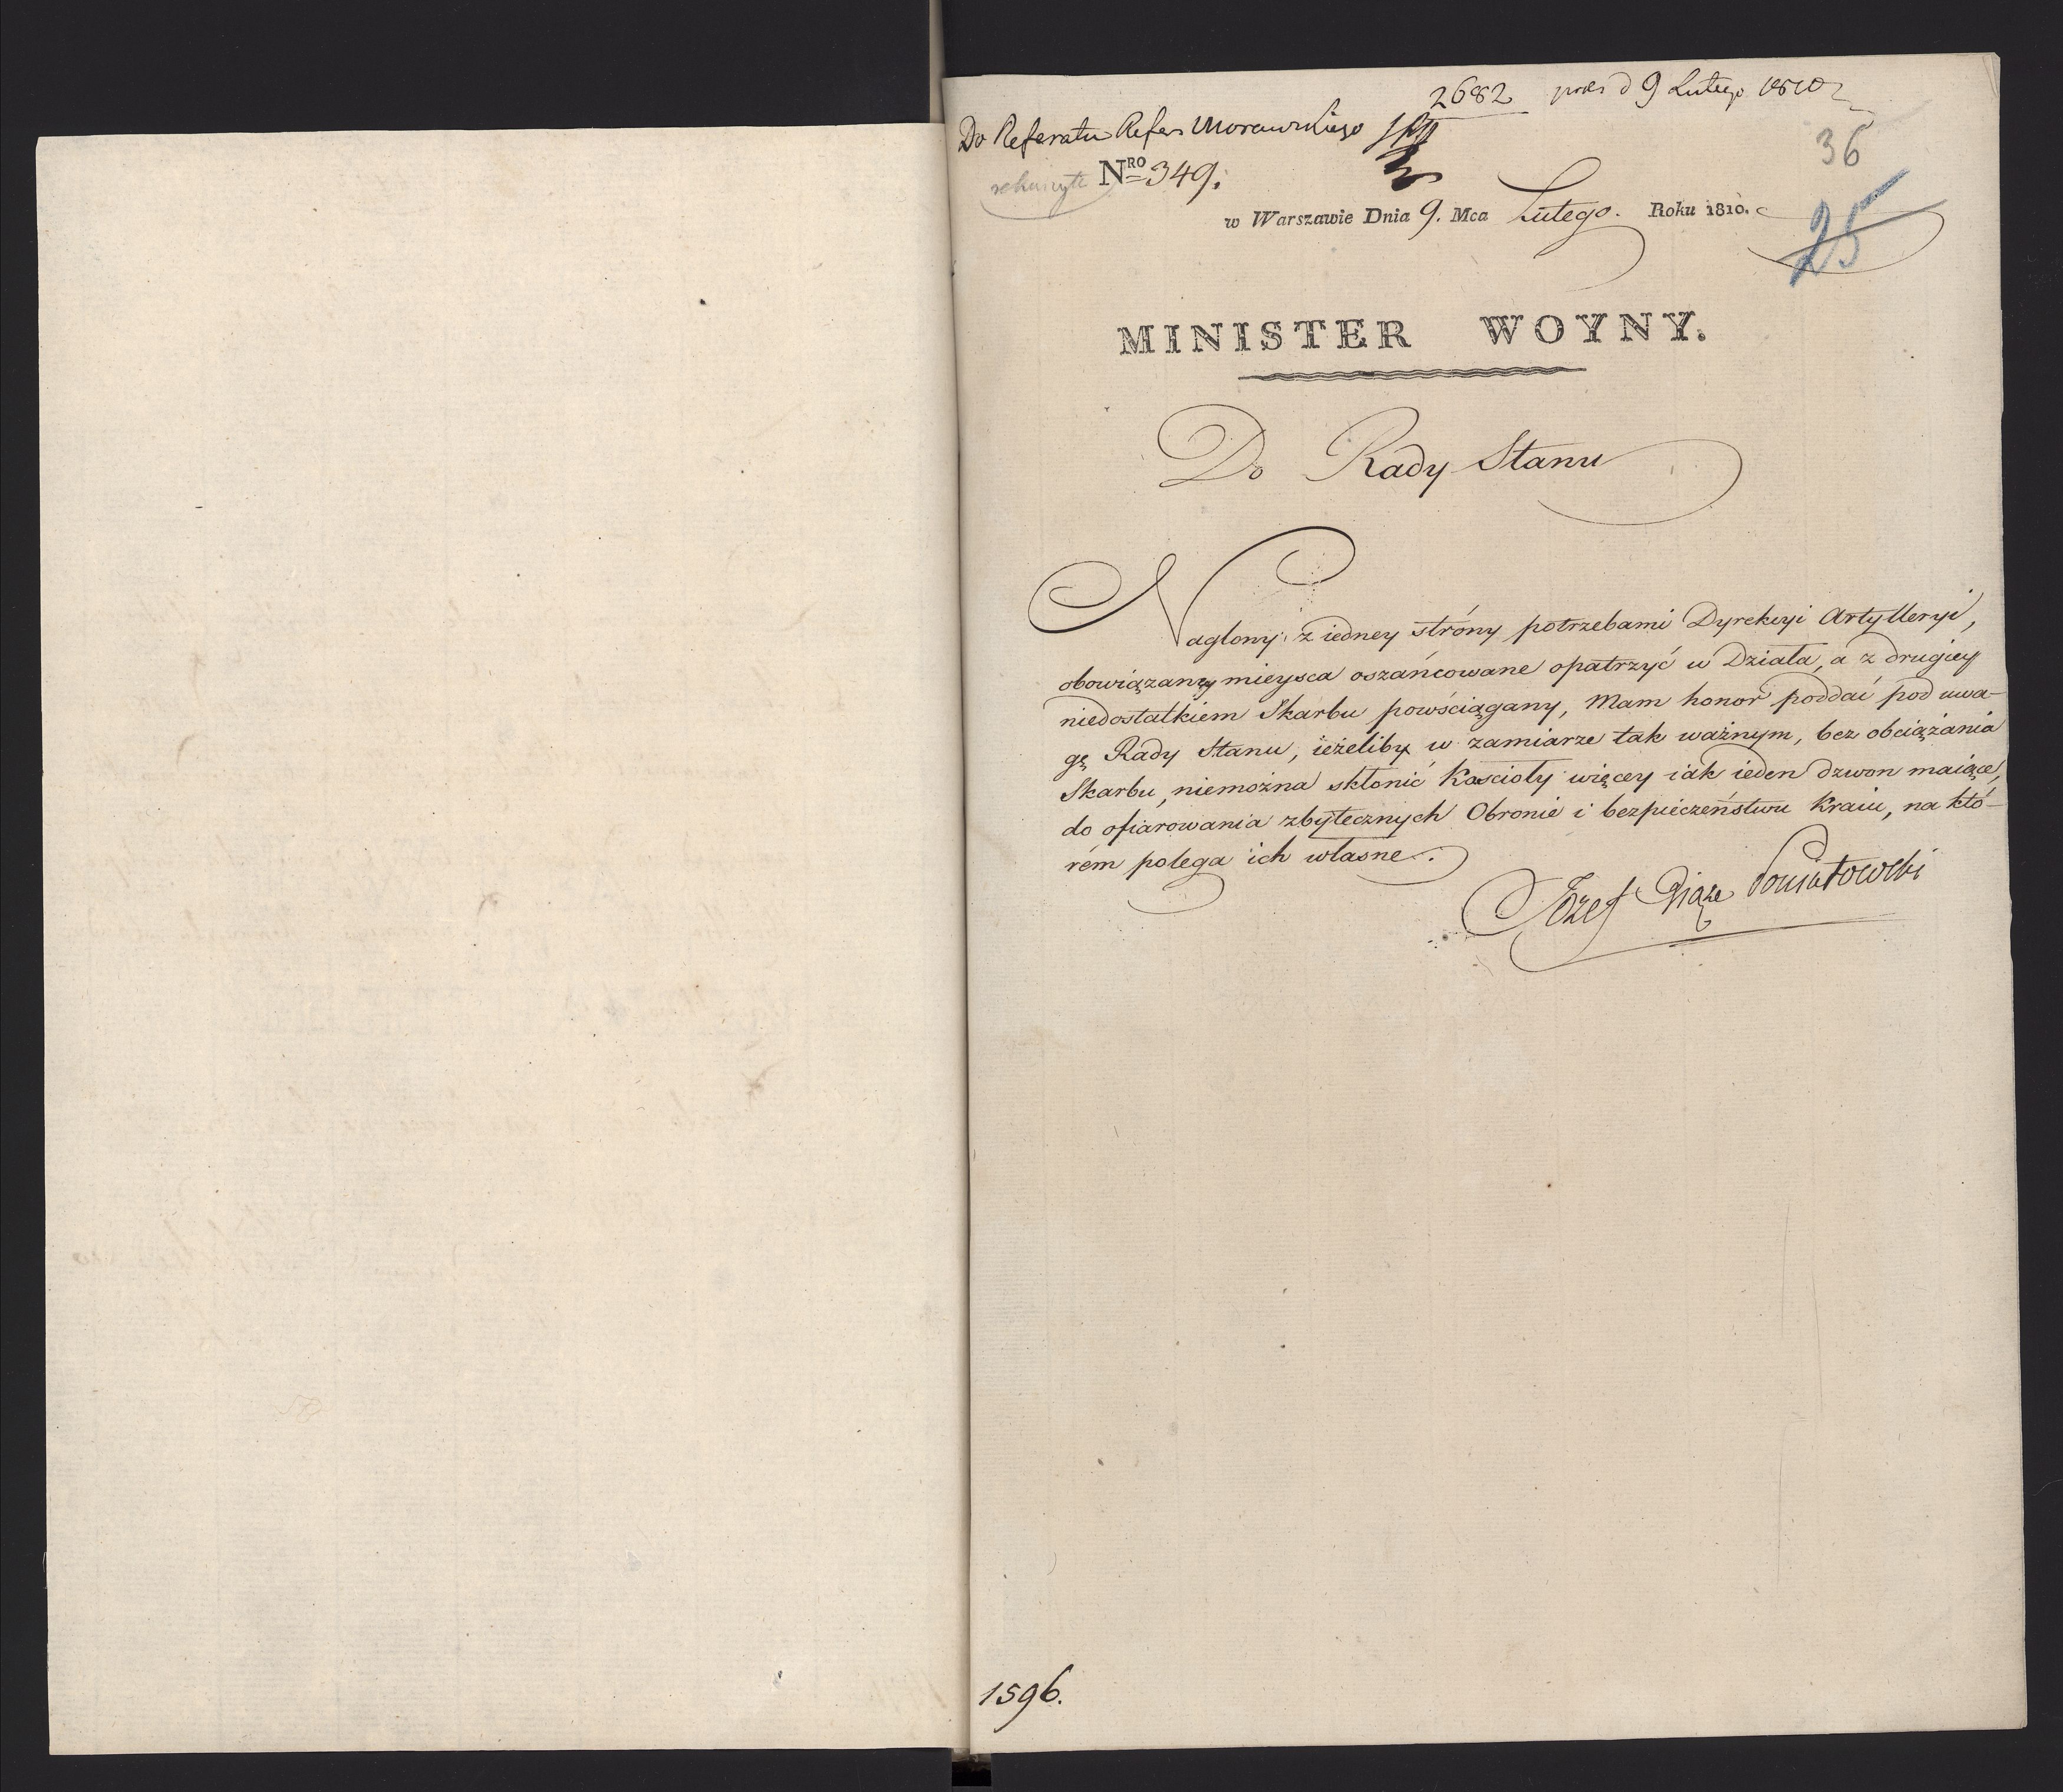 2682 prod d 9 Lutego 1810 r
Do Referatu Refer Morawskiego
36
N<sup>RO</sup> 349.
w Warszawie Dnia 9. Mca Lutego. Roku 1810.
25
MINISTER WOYNY.
Do Rady Stanu
Naglony z iedney stróny potrzebami Dyrekcyi Artylleryi,
obowiązany mieysca oszańcowane opatrzyć w Działa, a z drugiey
niedostatkiem Skarbu powściągany, Mam honor poddać pod uwa-
gę Rady Stanu, ieżeliby w zamiarze tak ważnym, bez obciążania
Skarbu, niemożna skłonić Kościoły więcey iak ieden dzwon maiące,
do ofiarowania zbytecznych Obronie i bezpieczeństwu Kraiu, na któ-
rém polega ich własne.
Józef Xiąże Poniatowski
1596.